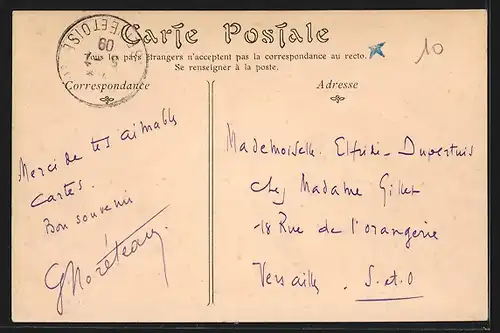 Carte Postale
Tous les pays étrangers n'acceptent pas la correspondance au recto.
Se renseigner à la poste.
Correspondance
Adresse
10
09
Merci de tes aimables
cartes.
Bon souvenir
Mademoiselle Elfride Dupertuis
chez Madame Gillet
18 Rue de l'orangerie
Versailles. S. et O